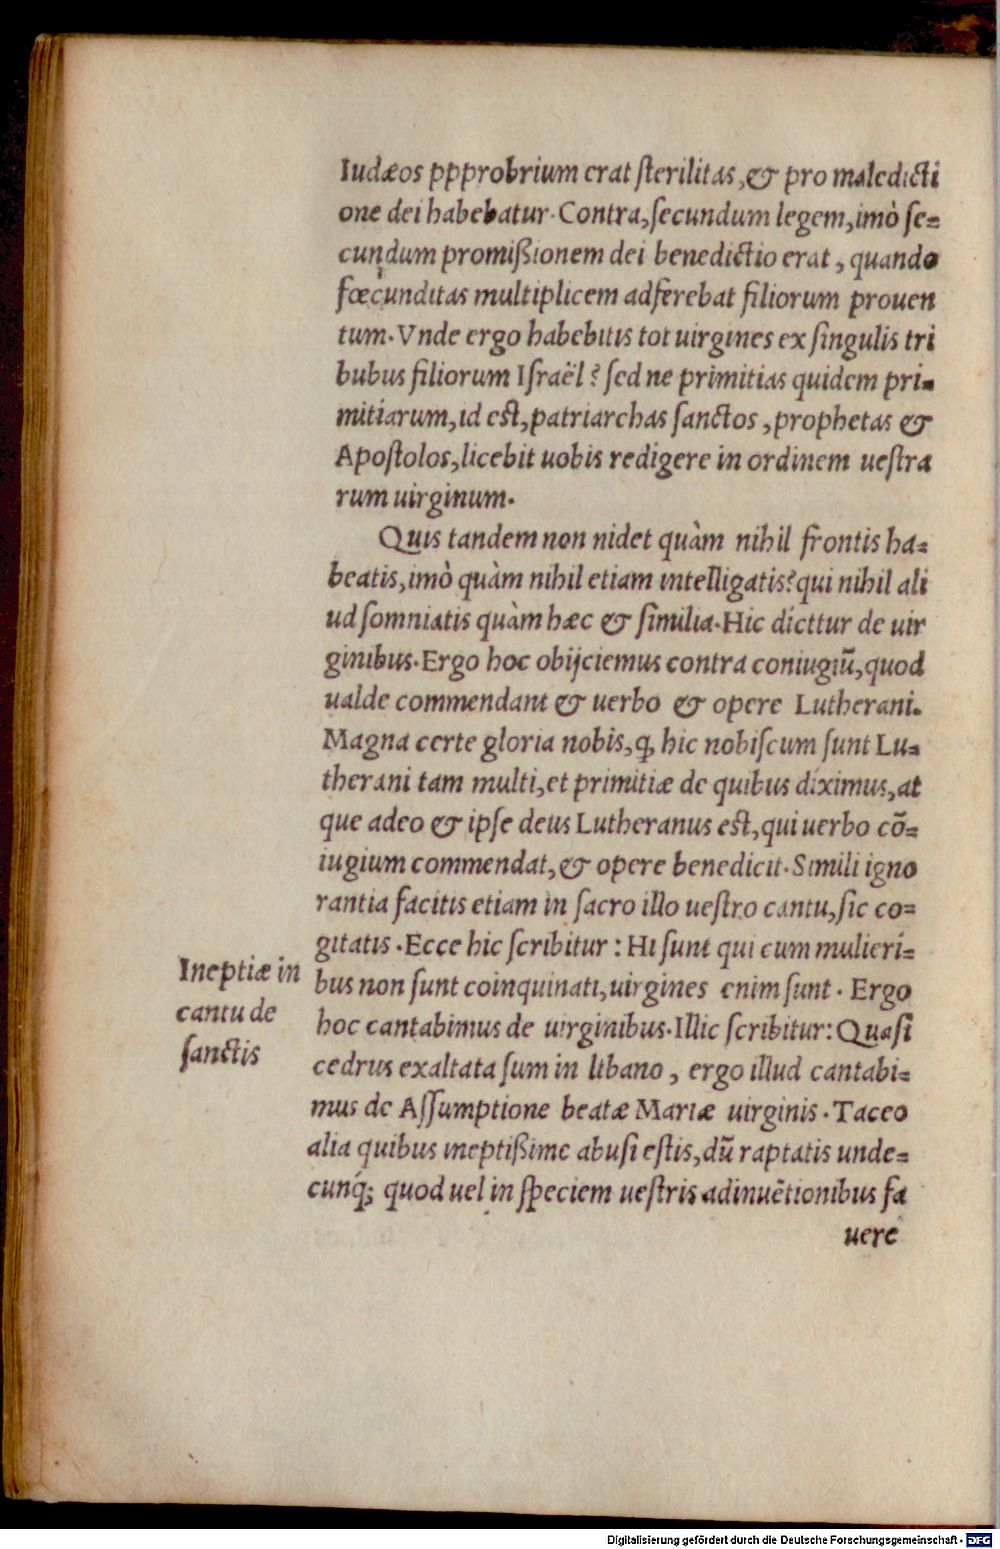 Iudæos ppprobrium erat ſterilitas, & pro maledicti
one dei habebatur. Contra, ſecundum legem, imò ſe-
cundum promißionem dei benedictio erat, quando
fœcunditas multiplicem adferebat filiorum prouen
tum. Vnde ergo habebitis tot uirgines ex ſingulis tri
bubus filiorum Iſraël? ſed ne primitias quidem pri-
mitiarum, id eſt, patriarchas ſanctos, prophetas &
Apoſtolos, licebit uobis redigere in ordinem ueſtra
rum uirginum.
Quis tandem non nidet quàm nihil frontis ha-
beatis, imò quàm nihil etiam intelligatis? qui nihil ali
ud ſomniatis quàm hæc & ſimilia. Hic dicttur de uir
ginibus. Ergo hoc obijciemus contra coniugiũ, quod
ualde commendant & uerbo & opere Lutherani.
Magna certe gloria nobis, ꝙ hic nobiſcum ſunt Lu-
therani tam multi, et primitiæ de quibus diximus, at
que adeo & ipſe deus Lutheranus eſt, qui uerbo cõ-
iugium commendat, & opere benedicit. Simili igno
rantia facitis etiam in ſacro illo ueſtro cantu, ſic co-
gitatis. Ecce hic ſcribitur: Hi ſunt qui cum mulieri-
bus non ſunt coinquinati, uirgines enim ſunt. Ergo
hoc cantabimus de uirginibus. Illic ſcribitur: Quaſi
cedrus exaltata ſum in libano, ergo illud cantabi-
mus de Aſſumptione beatæ Mariæ uirginis. Taceo
alia quibus ineptißime abuſi eſtis, dũ raptatis unde-
cunq́; quod uel in ſpeciem ueſtris adinuẽtionibus fa
uere
Ineptiæ in
cantu de
ſanctis
Digitalisierung gefördert durch die Deutsche Forschungsgemeinschaft - DFG